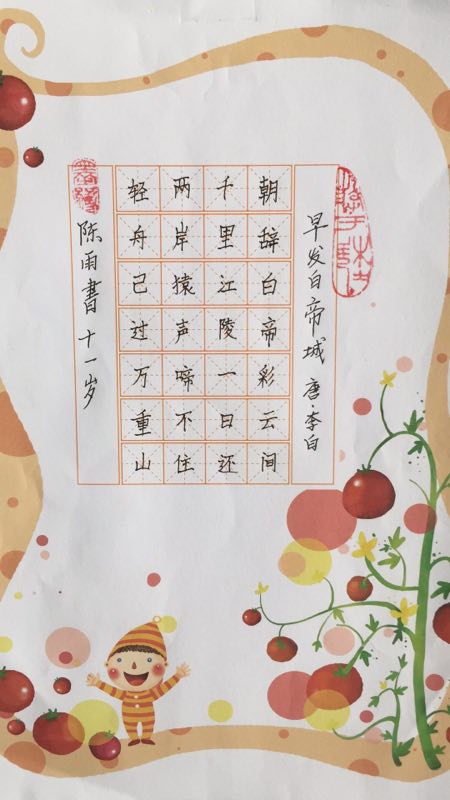 早发白帝城 唐·李白
朝辞白帝彩云间
千里江陵一日还
两岸猿声啼不住
轻舟已过万重山
陈雨書 十一岁